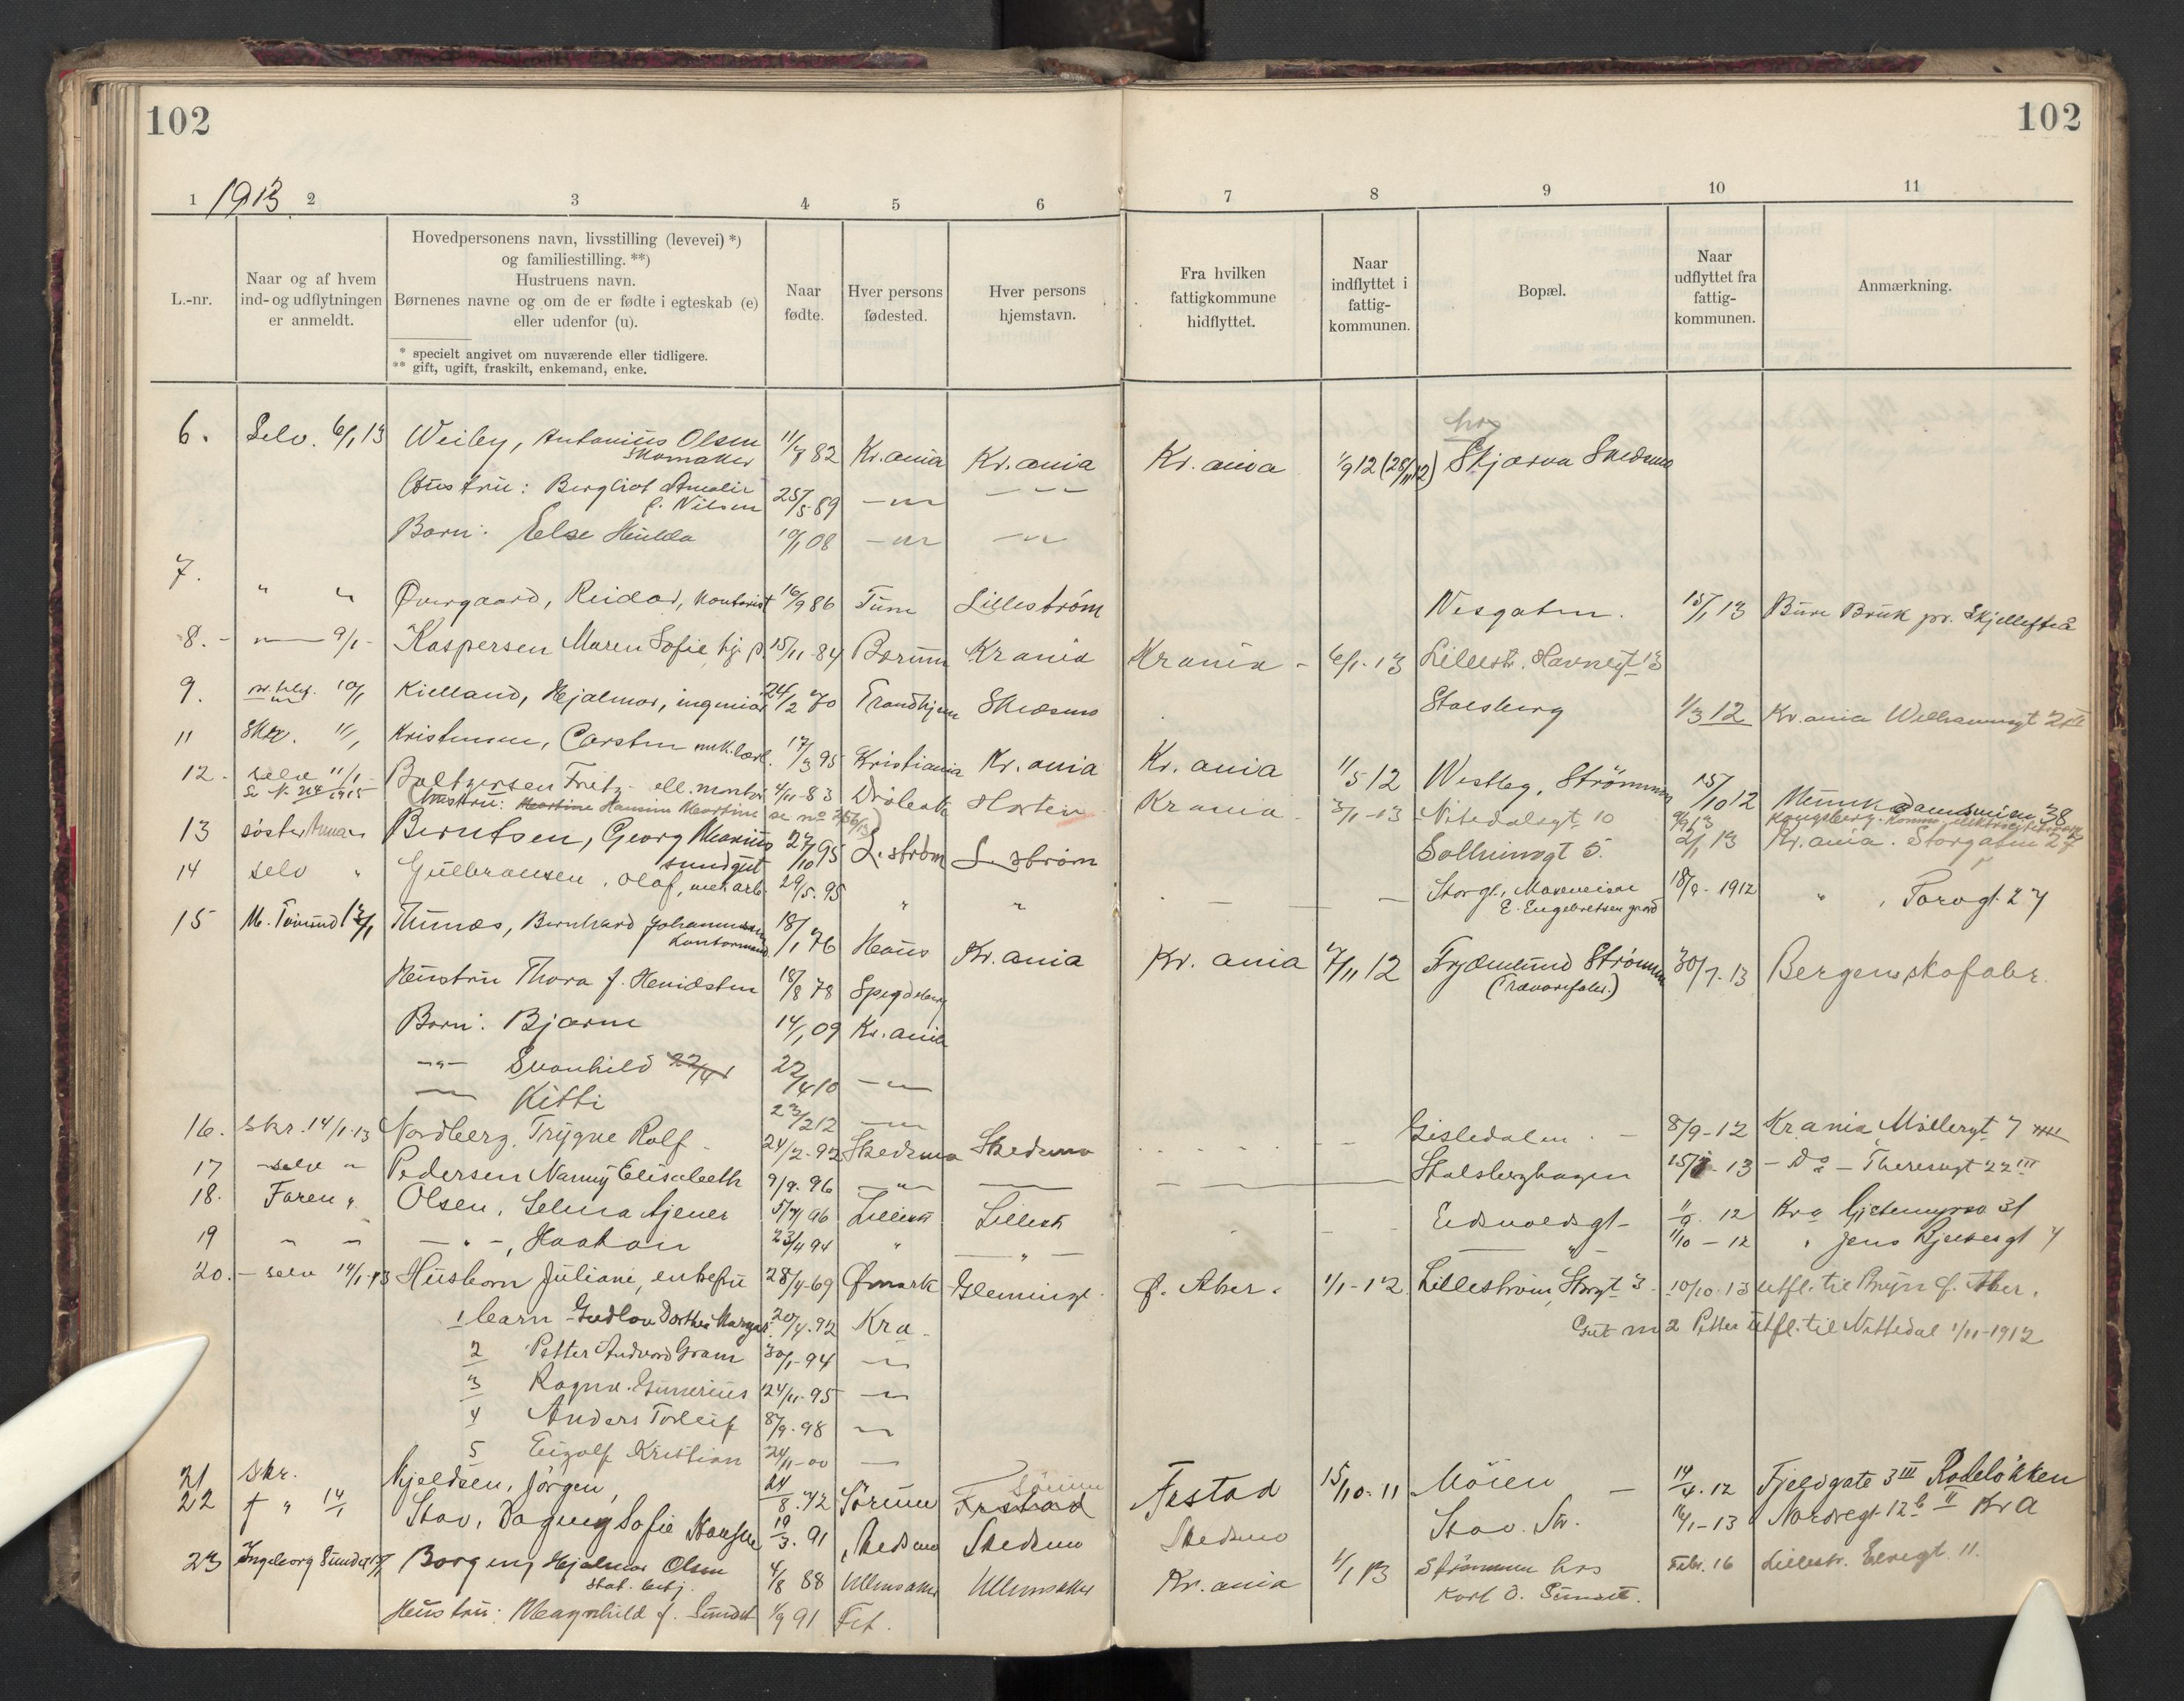 102
102
1913
1 2 3 4 5 6 7 8 9 10 11
L.-nr.
Naar og af hvem
ind- og udflytningen
er anmeldt.
Hovedpersonens navn, livsstilling (levevei) *)
og familiestilling. **)
Hustruens navn.
Børnenes navne og om de er fødte i egteskab (e)
eller udenfor (u).
* specielt angivet om nuværende eller tidligere.
** gift, ugift, fraskilt, enkemand, enke.
Naar
fødte.
Hver persons
fødested.
Hver persons
hjemstavn.
Fra hvilken
fattigkommune
hidflyttet.
Naar
indflyttet i
fattig-
kommunen.
Bopæl.
Naar
udflyttet fra
fattig-
kommunen.
Anmærkning.
hos
6. Selv. 6/1 13 Weiby, Antonius Olsen 82 Kr.ania Kr.ania Kr.ania 1/9 12 (28/11 12) Skjærva Skedsmo
Skomaker
Hustru: Bergliot Amalie 25/5 89 -"- -"-
f. Nilsen
Barn: Else Hulda 10/1 08 -"- -"-
7. " " Øvergaard, Reidar, kontorist 16/9 86 Tune Lillestrøm Nesgaten. 15/1 13 Bure Bruk pr. Skjellefteå
8. - -"- 9/1 - Kaspersen Maren Sofie 15/11-84 Bærum Krania Krania - 6/1-13 Lillestr. Havnegt 13
9. 10/1 Kielland, Hjalmar, ingeniør 24/2 70 Trondhjem Skedsmo Stalsberg 1/3 12 Kr.ania
11 Skr. 11/1 Kristensen, Carsten mek.lærl. 17/3 95 Kristiania Kr.ania Kr.ania 1/5 12 Westby, Strømmen 15/10 12 Munkedamsveien 38
12. selv 11/1 - Baltzersen Fritz - ell. montør 4/11-83 Drøbak Horten Krania 3/1-13 Nitedalsgt 10 9/9 13 Kongsberg. Komm. elektricitetsverk
Se N. 214 1915 (hustru: Hansine Martine se no 256/13)
13 søster Anna Berntsen, Georg Marius 27/10 95 L.strøm L.strøm Solheimsgt 5. 2/1 13 Kr.ania. Storgaten 27
sendgut
14 selv " Gulbransen, Olaf, mek.arb. 29/5.95 " " - - - Storgt., Mareneisae 18/9-1912 " , Torvgt. 27
E. Engebretsen gaard
15 M. Tvinund 13/1 Thunæs, Bernhard Johannessen 18/1 76 Haus Kr.ania Kr. ania 7/11 12 Frydenlund Strømmen 30/7.13 Bergens skofabr.
Kontormand (Trævarefabr.)
Hustru Thora f. Henidsten 18/8 78 Spydeberg
Barn: Bjarne 14/1 09 Kr.ania
-"- Svanhild 22/4 22/4 10 -"-
- Kitti 23/2 12 -"-
16. Skr. 14/1-13 Nordberg, Trygve Rolf - 24/2-92 Skedsmo Skedsmo Gisledalen - 8/9-12 Krania Møllergt 7
17 -selv " Pedersen Nanny Elisabeth 9/9.96 -"- Stalsberghagen 15/1-13 - Do - Theresegt 22 III
18. Faren " Olsen, Selma tjener 5/7 96 Lillestr Lillestr Eidsvoldsgt- 1/9 12 Kra Gjetemyrsv 31
19 - - - " -, Haakon 23/4 94 " - " - " 1/10-12 " Jens Bjelkesgt 4
20. - selv 14/1-13 Husborn Juliane, enkefru 28/4-69 Ømark Glemminge Ø. Aker. 1/1-12 Lillestrøm, Storgt 3. 10/10.13 utfl. til Bryn Ø. Aker.
1 barn Gudlou Dorthea Margar. 20/4.92 Kra. Gut nr 2 Petter utfl. til Nittedal 1/11-1912
2 Petter Andvord Gram 30/1-94 -"-
3 Ragnv. Gunerius 24/11.95 -"-
4 Anders Torleif 8/9.98 -"-
5 Eigolf Kristian 24/11-00 -
21 Skr. Kjeldsen, Jörgen, 24/8.42 Sörum Frstad Sörum Frstad 15/10-11 Möien - 14/4.12 Fjeldgate 3 III Rodeløkken
22 + " 14/1 Stav, Dagny Sofie Hansen 19/3.91 Skedsmo Skedsmo Skedsmo Stav. Str. 16/1-13 Nordregt 12b II Kra
23 Ingeborg Sundet Borgen, Hjalmar Olsen 4/8 88 Ullensaker Ullensaker Kr.ania 1/1 13 Strømmen hos Febr. 16 Lillestr. Elvegt. 11.
stat. betj. Karl O. Sundet.
Hustru: Magnhild f. Sundet 1/9 91 Fet.